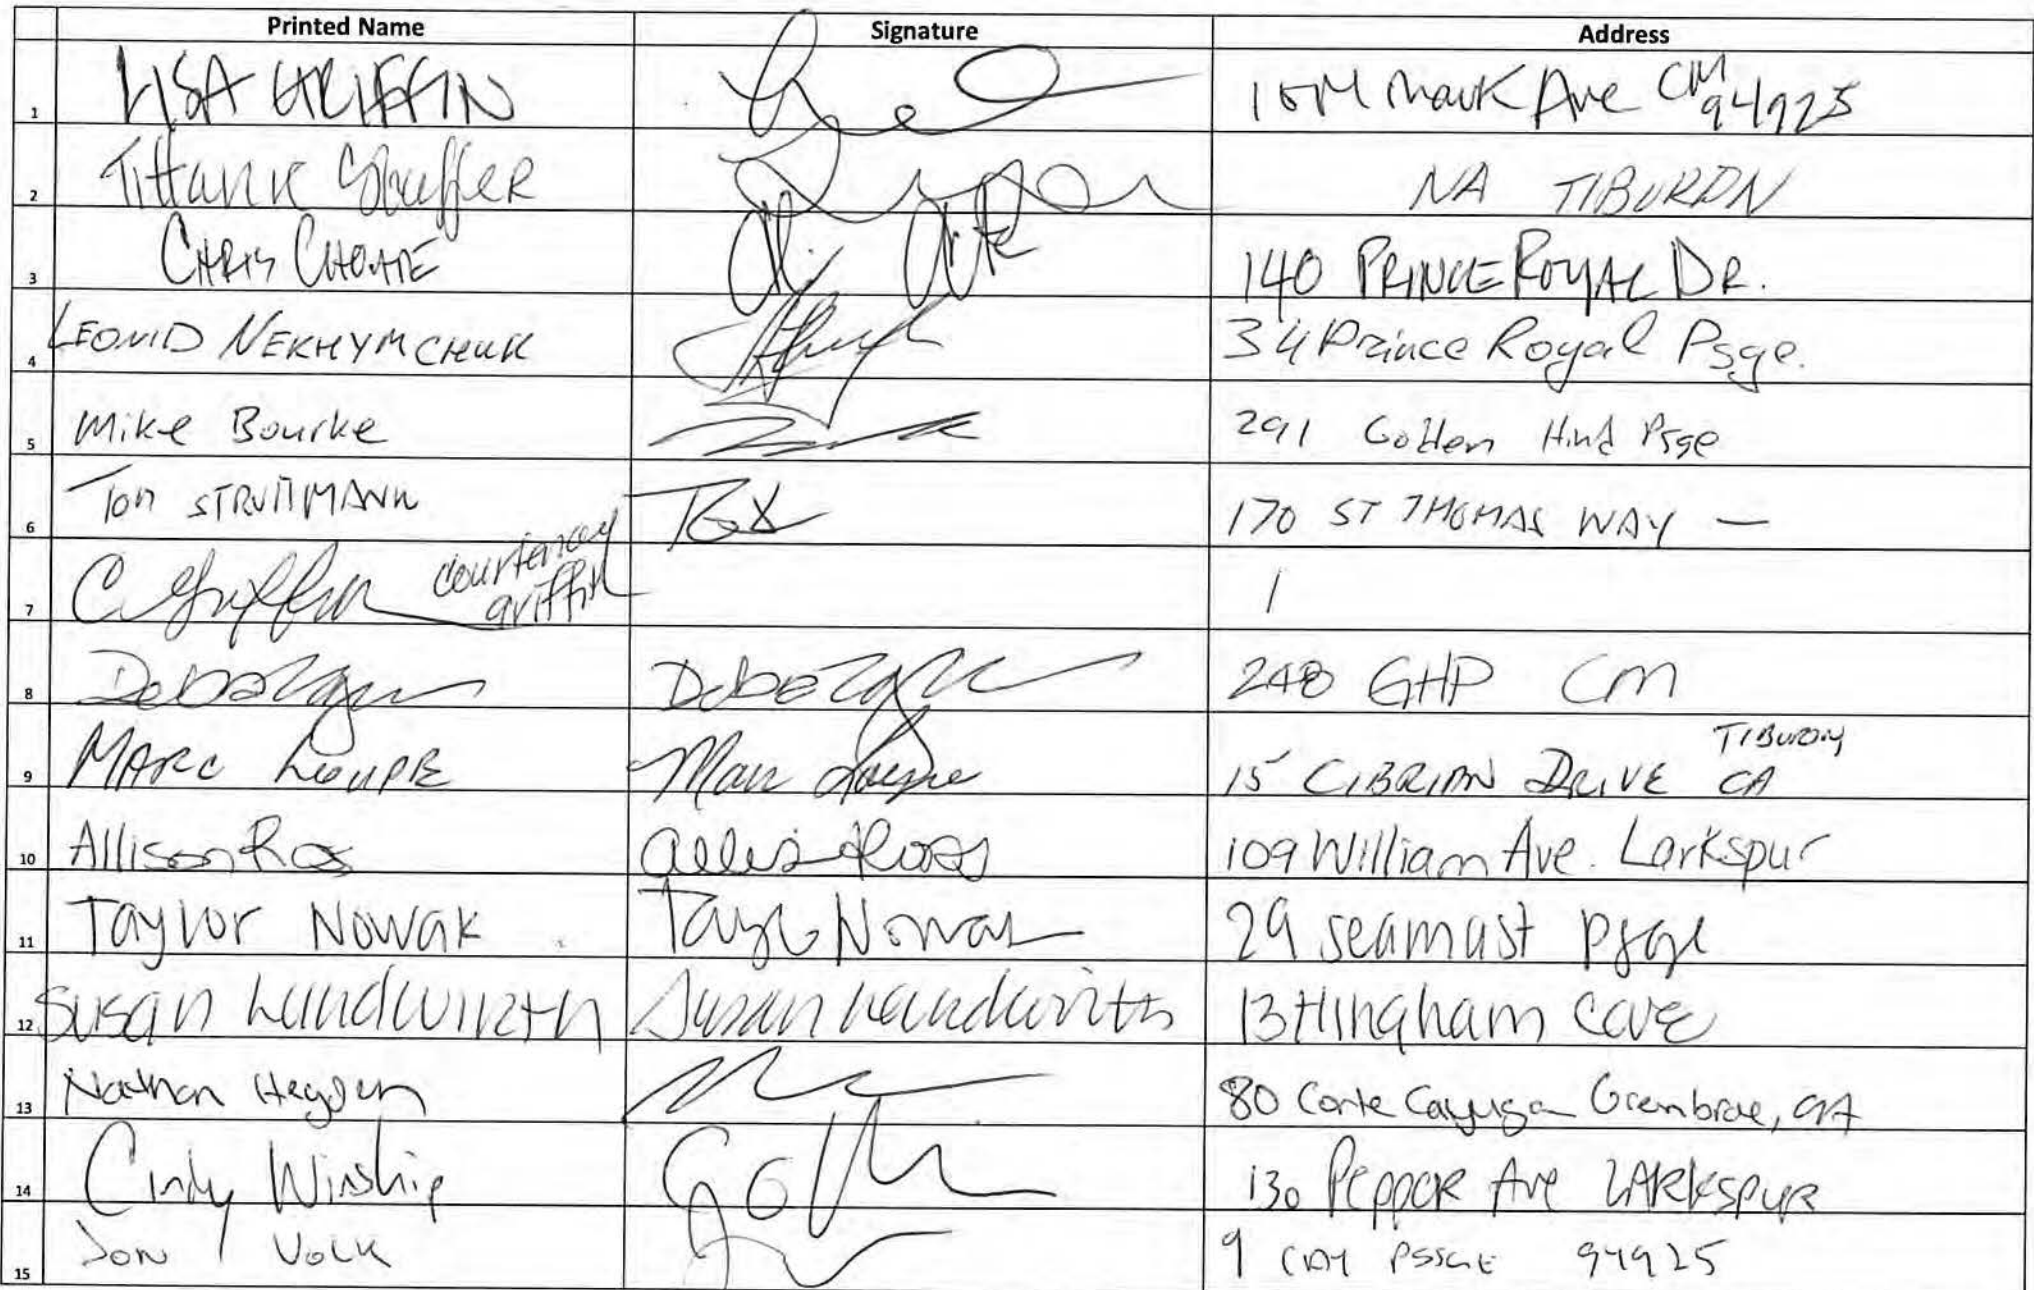 Printed Name Signature Address
1 LISA GRIFFIN Mark Ave CM 94925
2 Shaffer NA TIBURON
3 CHRIS CHOATE 140 PRINCE ROYAL DR.
4 LEONID NEKHYMCHUK 34 Prince Royal Psge.
5 Mike Bourke 291 Golden Hind Psge
6 Tom STRUTTMANN 170 ST THOMAS WAY —
7 C Griffin courtenay griffin
8 248 GHP CM
9 MARC LOUPE Marc Loupe 15 CIBRIAN DRIVE TIBURON CA
10 Allison Ross Allison Ross 109 William Ave. Larkspur
11 Taylor Nowak Taylor Nowak 29 seamast psge
12 Susan Landwirth Susan Landwirth 13 Hingham Cove
13 Nathan Hegden 80 Corte Cayuga Greenbrae, CA
14 Cindy Winship 130 Pepper Ave LARKSPUR
15 Jon Volk 9 PSSGE 94925